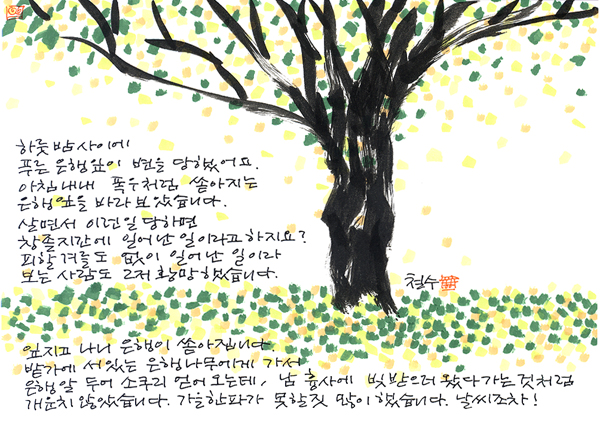 하룻밤 사이에
푸른 은행잎이 변을 당했어요.
아침내내 폭우처럼 쏟아지는
은행잎을 바라보았습니다.
살면서 이런일 당하면
창졸지간에 일어난 일이라고 하지요?
피할 겨를도 없이 일어난 일이라
보는 사람도 그저 황망했습니다.
철수
잎지고 나니 은행이 쏟아집니다
밭가에 서있는 은행나무에게 가서
은행알 두어 소쿠리 얻어 오는데, 남 흉사에 빚받으러 왔다가는 것처럼
개운치 않았습니다. 가을한파가 못할짓 많이 했습니다. 날씨조차!